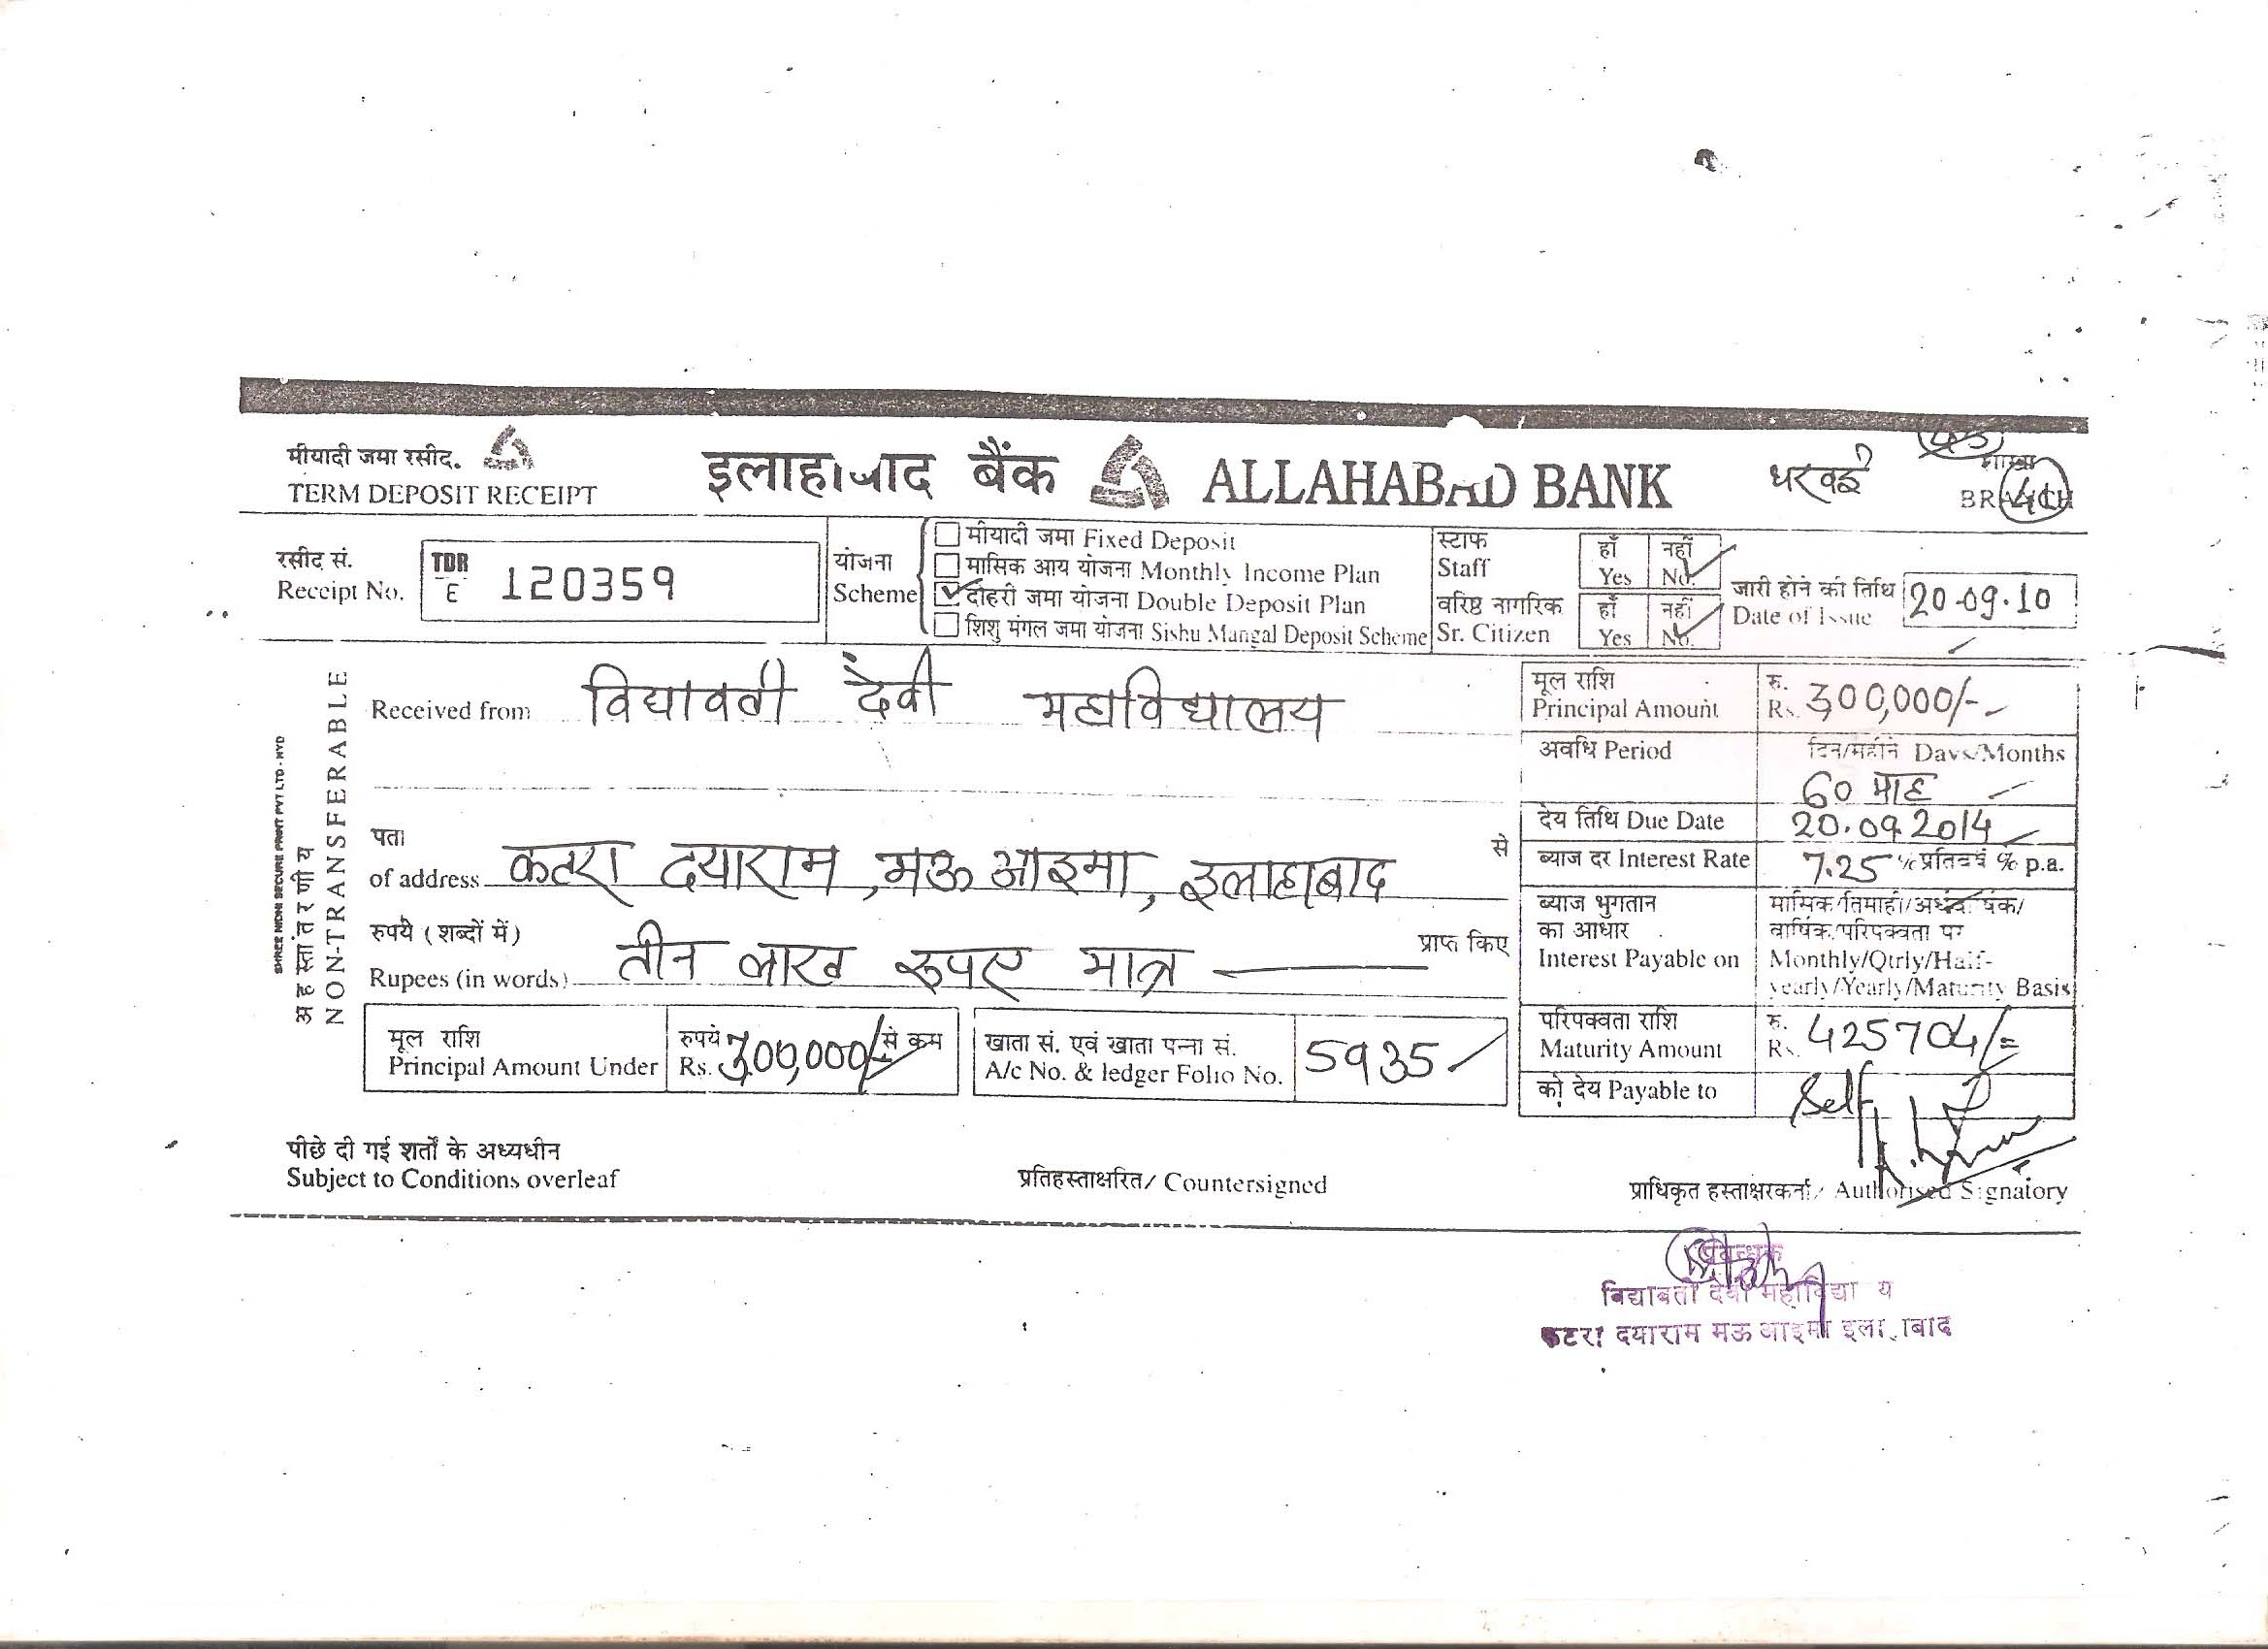 मीयादी जमा रसीद.
TERM DEPOSIT RECEIPT
इलाहाबाद बैंक ALLAHABAD BANK
धरवई
शाखा
BRANCH
रसीद सं.
Receipt No.
TDR
E 120359
योजना
Scheme
मीयादी जमा Fixed Deposit
मासिक आय योजना Monthly Income Plan
दोहरी जमा योजना Double Deposit Plan
शिशु मंगल जमा योजना Sishu Mangal Deposit Scheme
स्टाफ
Staff
हाँ नहीं
Yes No.
वरिष्ठ नागरिक
Sr. Citizen
हाँ नहीं
Yes No.
जारी होने की तिथि
Date of Issue
20-09-10
SHREE NIDHI SECURE PRINT PVT LTD - HYD
अहस्तांतरणीय
NON-TRANSFERABLE
Received from विद्यावती देवी महाविद्यालय
पता
of address कटरा दयाराम, मऊ आइमा, इलाहाबाद से
रुपये (शब्दों में)
Rupees (in words) तीन लाख रूपए मात्र प्राप्त किए
मूल राशि
Principal Amount Under
रुपये 3,00,000/- से कम
Rs.
खाता सं. एवं खाता पन्ना सं.
A/c No. & ledger Folio No.
5935
मूल राशि
Principal Amount
रु.
Rs. 300,000/-
अवधि Period
दिन/महीने Days/Months
60 माह
देय तिथि Due Date
20.09.2014
ब्याज दर Interest Rate
7.25 % प्रतिवर्ष % p.a.
ब्याज भुगतान
का आधार
Interest Payable on
मासिक/तिमाही/अर्धवार्षिक/
वार्षिक/परिपक्वता पर
Monthly/Qtrly/Half-
yearly/Yearly/Maturity Basis
परिपक्वता राशि
Maturity Amount
रु.
Rs. 425704/=
को देय Payable to
Self
पीछे दी गई शर्तों के अध्यधीन
Subject to Conditions overleaf
प्रतिहस्ताक्षरित/ Countersigned
प्राधिकृत हस्ताक्षरकर्ता/ Authorised Signatory
प्रबन्धक
विद्यावती देवी महाविद्या य
कटरा दयाराम मऊ आइमा इला बाद